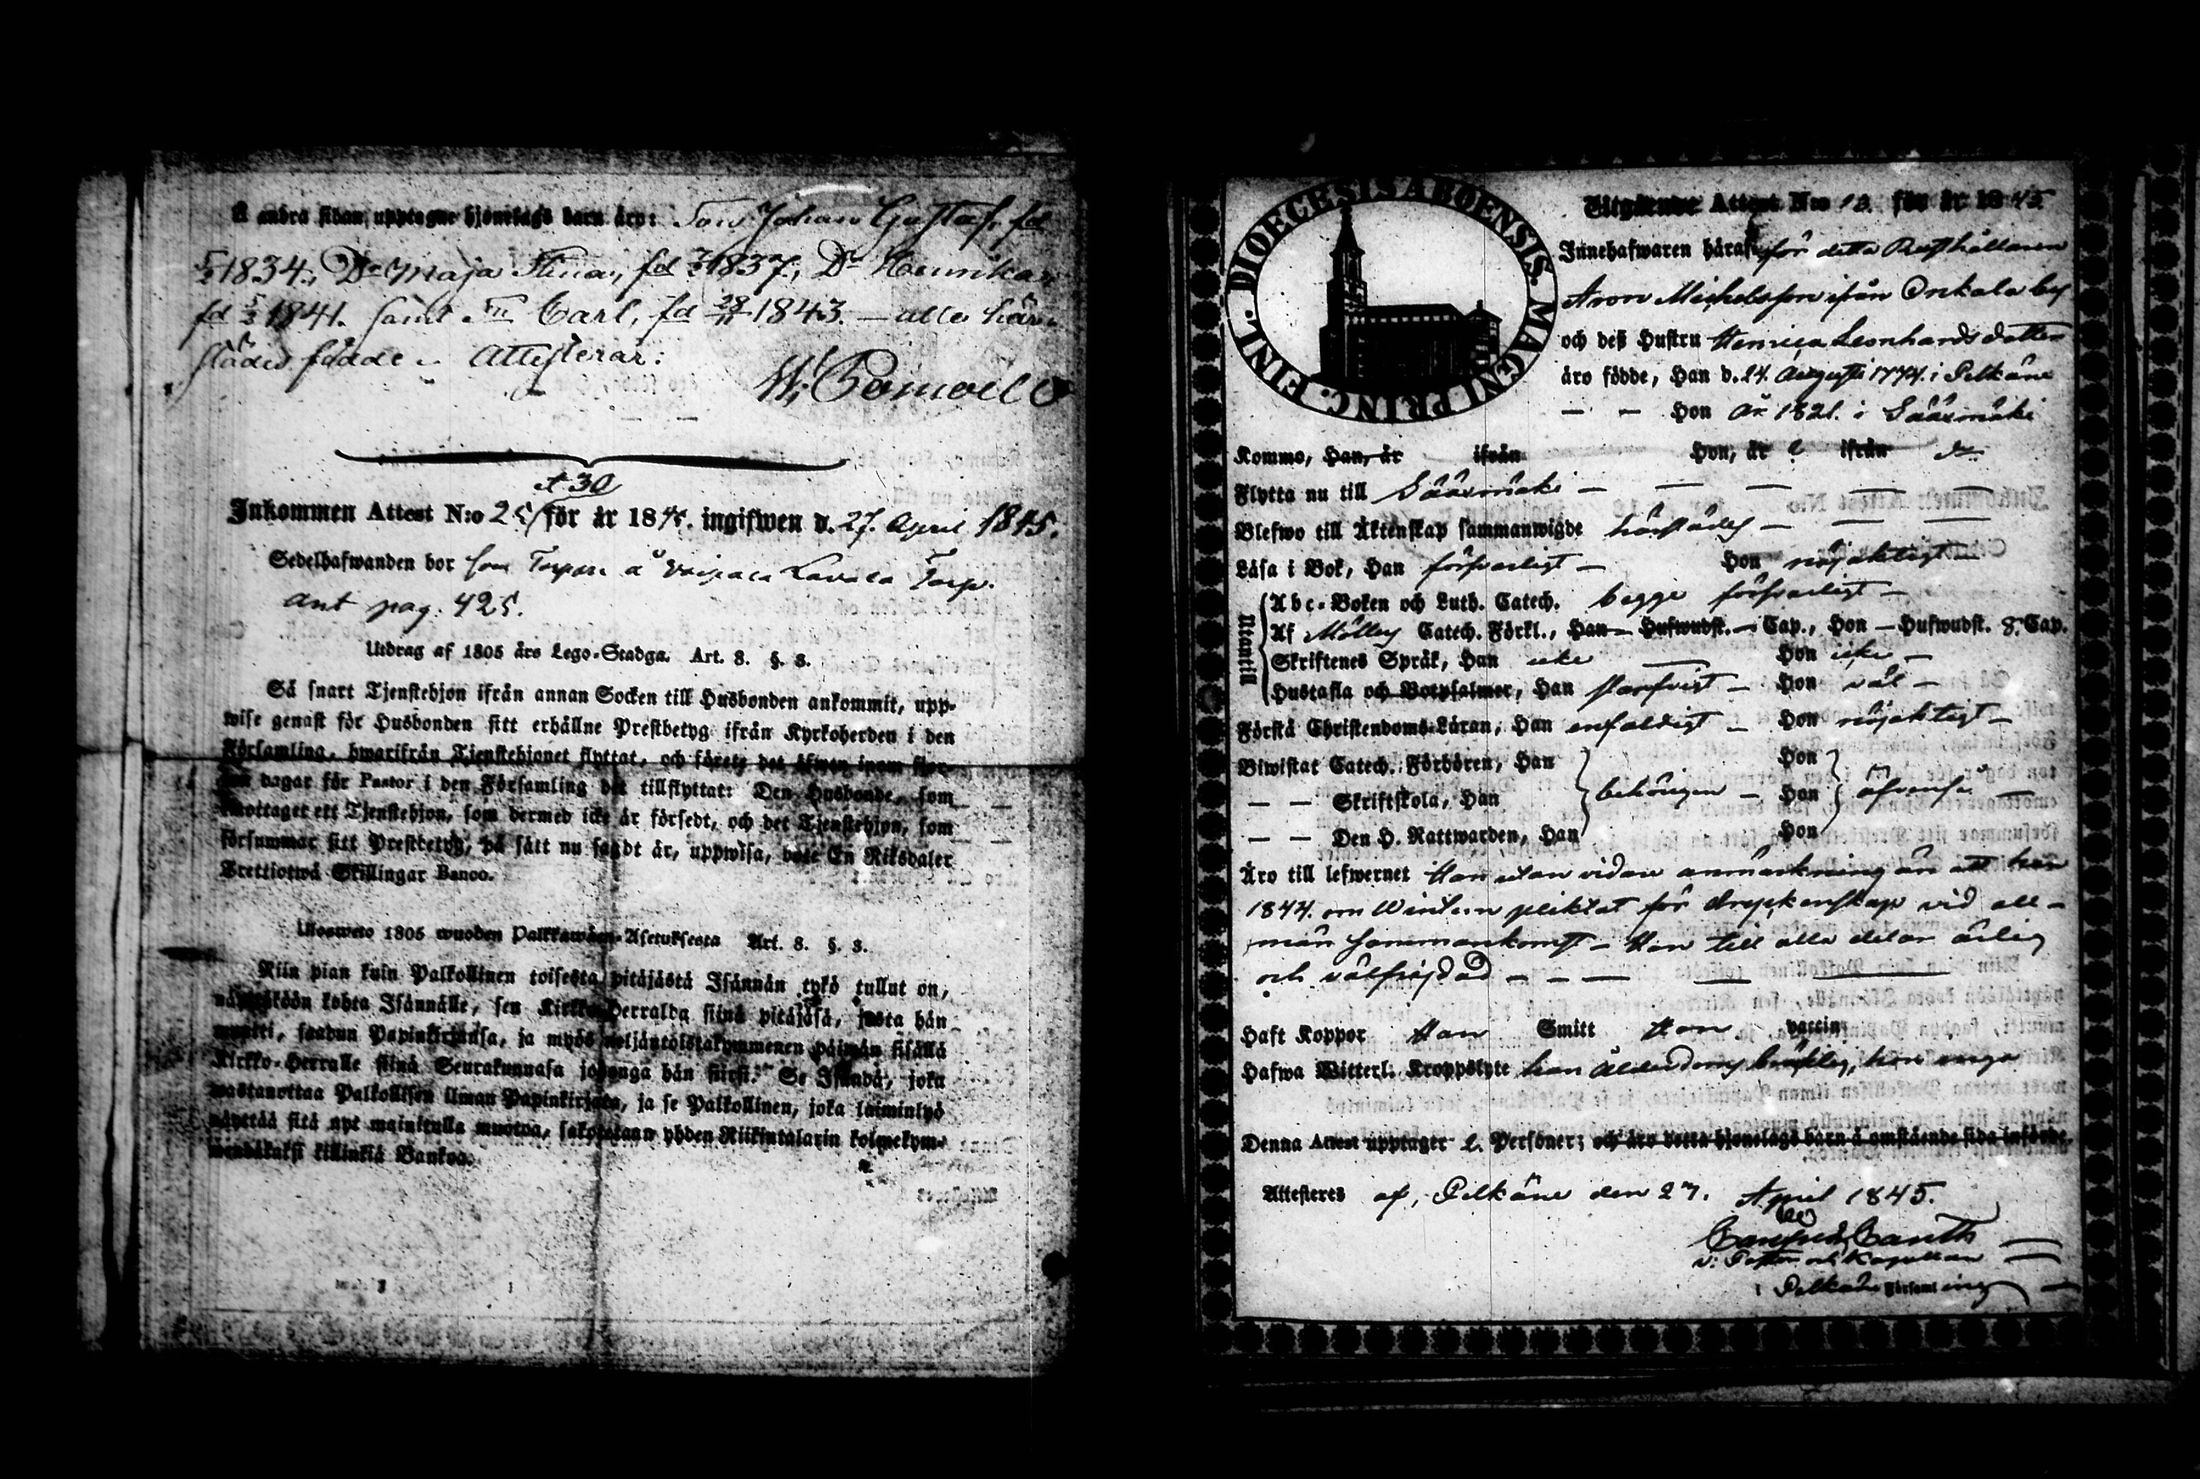 Å andra sidan upptagne hjonelags barn äro: Son Johan Gustaf, fd
5/2 1834., Dr Maja Stina, fd 7/3 1837, Dr Henrika
fd 5/3 1841. samt Sn Carl, fd 28/11 1843. — alla här-
städes födde. Attesterar:
№ 30
Inkommen Attest N:o 25 för år 1845. ingifwen d. 27. April 1845.
Sedelhafwanden bor som Torpare å Torp.
ant pag. 425.
Utdrag af 1805 års Lego-Stadga. Art. 8. §. 3.
Så snart Tjenstehjon ifrån annan Socken till Husbonden ankommit, upp-
wise genast för Husbonden sitt erhållne Prestbetyg ifrån Kyrkoherden i den
Församling, hwarifrån Tjenstehjonet flyttat, och förete det äfwen inom fjor-
ton dagar för Pastor i den Församling det tillflyttat: Den Husbonde, som
emottaget ett Tjenstehjon, som dermed icke är försedt, och det Tjenstehjon, som
försummar sitt Prestbetyg, på sätt nu sagdt är, uppwisa, böte En Riksdaler
Trettiotwå Skillingar Banco.
Ulosweto 1805 wuoden Palkkawäen-Asetuksesta Art. 8. §. 3.
Niin pian kuin Palkollinen toisesta pitäjästä Isännän tykö tullut on,
näyttäköön kohta Isännälle, sen Kirkko-Herralda siinä pitäjäsä, josta hän
muutti, saadun Papinkirjansa, ja myös neljäntoistakymmenen päiwän sisällä
Kirkko-Herralle siinä Seurakunnasa johonga hän siirsi: Se Isändä, joka
wastanottaa Palkollisen ilman Papinkirjata, ja se Palkollinen, joka laiminlyö
näyttää sitä nyt mainitulla muotoa, sakotetaan yhden Riikintalarin kolmekym-
mendäkaksi killinkiä Bankoa.
DIOECESIS ABOENSIS. MAGNI PRINC. FINL.
Utgående Attest N:o 13. för år 1845.
Innehafwaren häraf, för detta Rusthållaren
Aron Michelsson ifrån Onkala by
och deß Hustru Henrica Leonhardsdotter
äro födde, Han d. 24. Augusti 1774. i Pelkäne
— — Hon År 1821. i Sääxmäki
Kommo, Han, år ifrån Hon, år ifrån
Flytta nu till Sääxmäki — — — — —
Blefwo till Äktenskap sammanwigde härstädes — — —
Läsa i Bok, Han försvarligt — Hon nöjaktigt —
Utantill
Abc-Boken och Luth. Catech. begge försvarligt —
Af Möllers Catech. Förkl., Han — Hufwudst. — Cap., Hon — Hufwudst. 8. Cap.
Skriftenes Språk, Han icke — Hon icke —
Hustafla och Botpsalmer, Han styckvist — Hon väl —
Förstå Christendoms-Läran, Han enfaldigt — Hon nöjaktigt —
Biwistat Catech. Förhören, Han Hon
— — Skriftskola, Han behörigen — Hon äfvenså —
— — Den H. Nattwarden, Han Hon
Äro till lefwernet Han utan vidare anmärkning än att han
1844. om Wintern pliktat för dryckenskap vid all-
män sammankomst — Hon till alla delar ärlig
och välfrejdad — — — — —
Haft Koppor Han Smitt Hon vaccin
Hafwa Witterl. Kroppslyte han Ålderdoms bräcklig, hon inga
Denna Attest upptager 2. Personer; och äro detta hjonelags barn å omstående sida införde.
Attesteres af, Pelkäne den 27. April 1845.
v: Pastor och Kapellan
i Pelkäne Församling